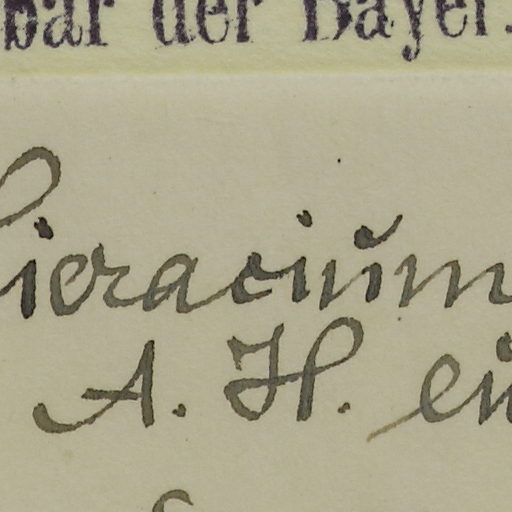 bar der Bayer.
Hieracium
A. H. eu